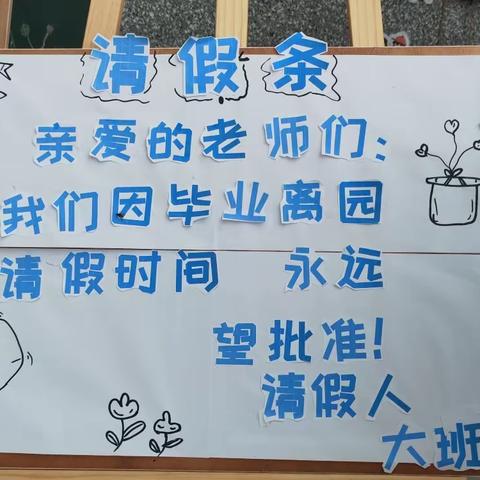 请假条
亲爱的老师们:
我们因毕业离园
请假时间 永远
望批准!
请假人
大班